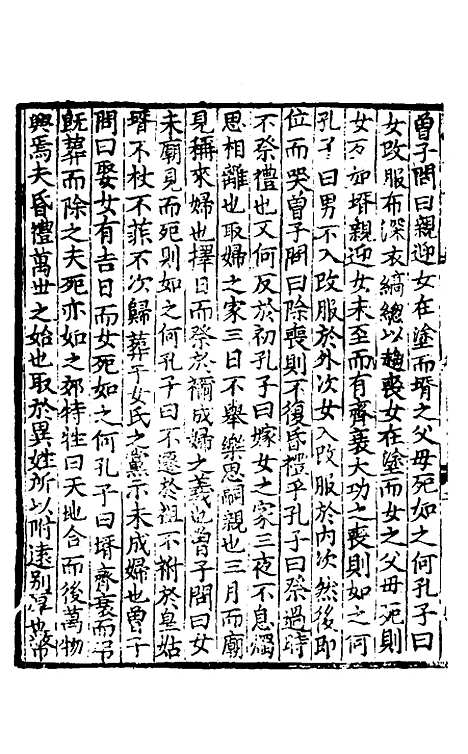 曾子問曰親迎女在塗而壻之父母死如之何孔子曰
女改服布深衣縞總以趨喪女在塗而女之父母死則
女反如壻親迎女未至而有齊衰大功之喪則如之何
孔子曰男不入改服於外次女入改服於内次然後即
位而哭曾子問曰除喪則不復昏禮乎孔子曰祭過時
不祭禮也又何反於初孔子曰嫁女之家三夜不息燭
思相離也取婦之家三日不舉樂思嗣親也三月而廟
見稱來婦也擇日而祭於禰成婦之義也曾子問曰女
未廟見而死則如之何孔子曰不遷於祖不祔於皇姑
壻不杖不菲不次歸葬于女氏之黨示未成婦也曾子
問曰娶女有吉日而女死如之何孔子曰壻齊衰而弔
既葬而除之夫死亦如之郊特牲曰天地合而後萬物
興焉夫昏禮萬世之始也取於異姓所以附逺别厚也